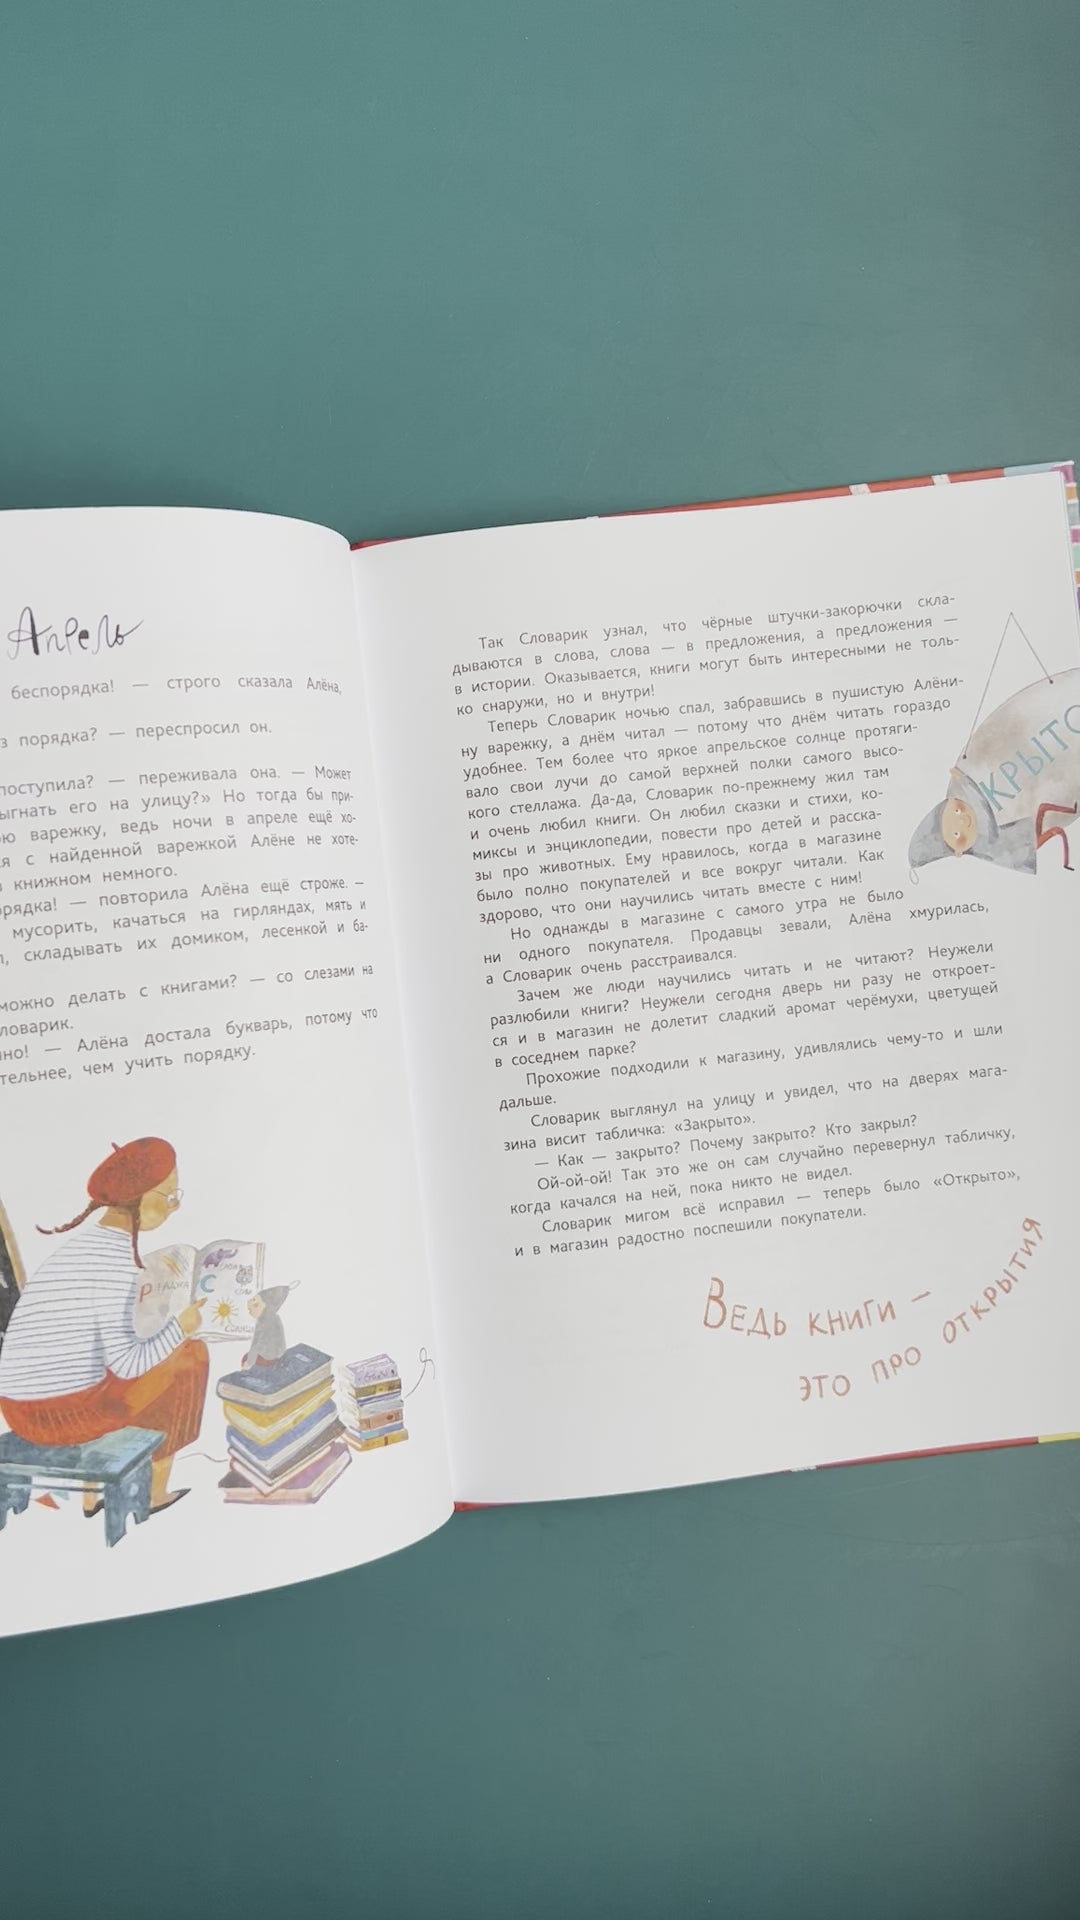 Апрель
беспорядка! — строго сказала Алёна,
з порядка? — переспросил он.
поступила? — переживала она. — Может
ыгнать его на улицу?» Но тогда бы при-
ю варежку, ведь ночи в апреле ещё хо-
я с найденной варежкой Алёне не хоте-
в книжном немного.
орядка! — повторила Алёна ещё строже. —
мусорить, качаться на гирляндах, мять и
л, складывать их домиком, лесенкой и ба-
можно делать с книгами? — со слезами на
ловарик.
но! — Алёна достала букварь, потому что
тельнее, чем учить порядку.
Р РАДУГА С
СЛОН
СОВА
СОЛНЦЕ
Я
Так Словарик узнал, что чёрные штучки-закорючки скла-
дываются в слова, слова — в предложения, а предложения —
в истории. Оказывается, книги могут быть интересными не толь-
ко снаружи, но и внутри!
Теперь Словарик ночью спал, забравшись в пушистую Алёни-
ну варежку, а днём читал — потому что днём читать гораздо
удобнее. Тем более что яркое апрельское солнце протяги-
вало свои лучи до самой верхней полки самого высо-
кого стеллажа. Да-да, Словарик по-прежнему жил там
и очень любил книги. Он любил сказки и стихи, ко-
миксы и энциклопедии, повести про детей и расска-
зы про животных. Ему нравилось, когда в магазине
было полно покупателей и все вокруг читали. Как
здорово, что они научились читать вместе с ним!
Но однажды в магазине с самого утра не было
ни одного покупателя. Продавцы зевали, Алёна хмурилась,
а Словарик очень расстраивался.
Зачем же люди научились читать и не читают? Неужели
разлюбили книги? Неужели сегодня дверь ни разу не откроет-
ся и в магазин не долетит сладкий аромат черёмухи, цветущей
в соседнем парке?
Прохожие подходили к магазину, удивлялись чему-то и шли
дальше.
Словарик выглянул на улицу и увидел, что на дверях мага-
зина висит табличка: «Закрыто».
— Как — закрыто? Почему закрыто? Кто закрыл?
Ой-ой-ой! Так это же он сам случайно перевернул табличку,
когда качался на ней, пока никто не видел.
Словарик мигом всё исправил — теперь было «Открыто»,
и в магазин радостно поспешили покупатели.
КРЫТО
Ведь книги —
это про открытия